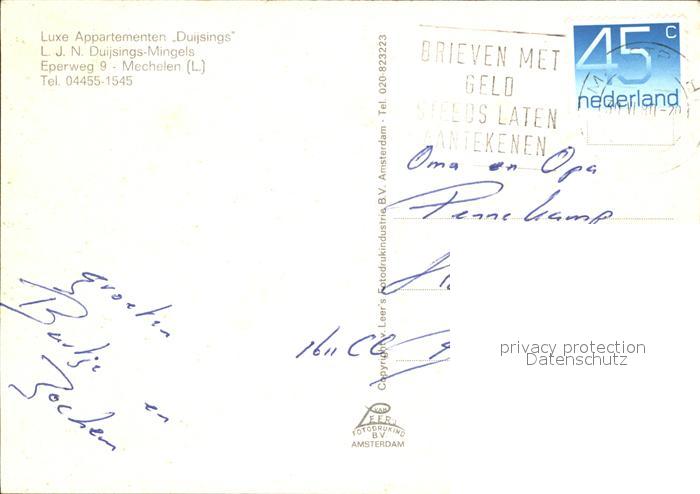 Luxe Appartementen „Duijsings"
L. J. N. Duijsings-Mingels
Eperweg 9 - Mechelen (L.)
Tel. 04455-1545
Copyright v. Leer's Fotodrukindustrie B.V. Amsterdam - Tel. 020-823223
BRIEVEN MET
GELD
STEEDS LATEN
AANTEKENEN
45 c
nederland
Oma en Opa
Pennekamp
1611 CC
groeten
Bertje en
Jochem
VAN
LEER'S
FOTODRUKIND
B.V.
AMSTERDAM
privacy protection
Datenschutz